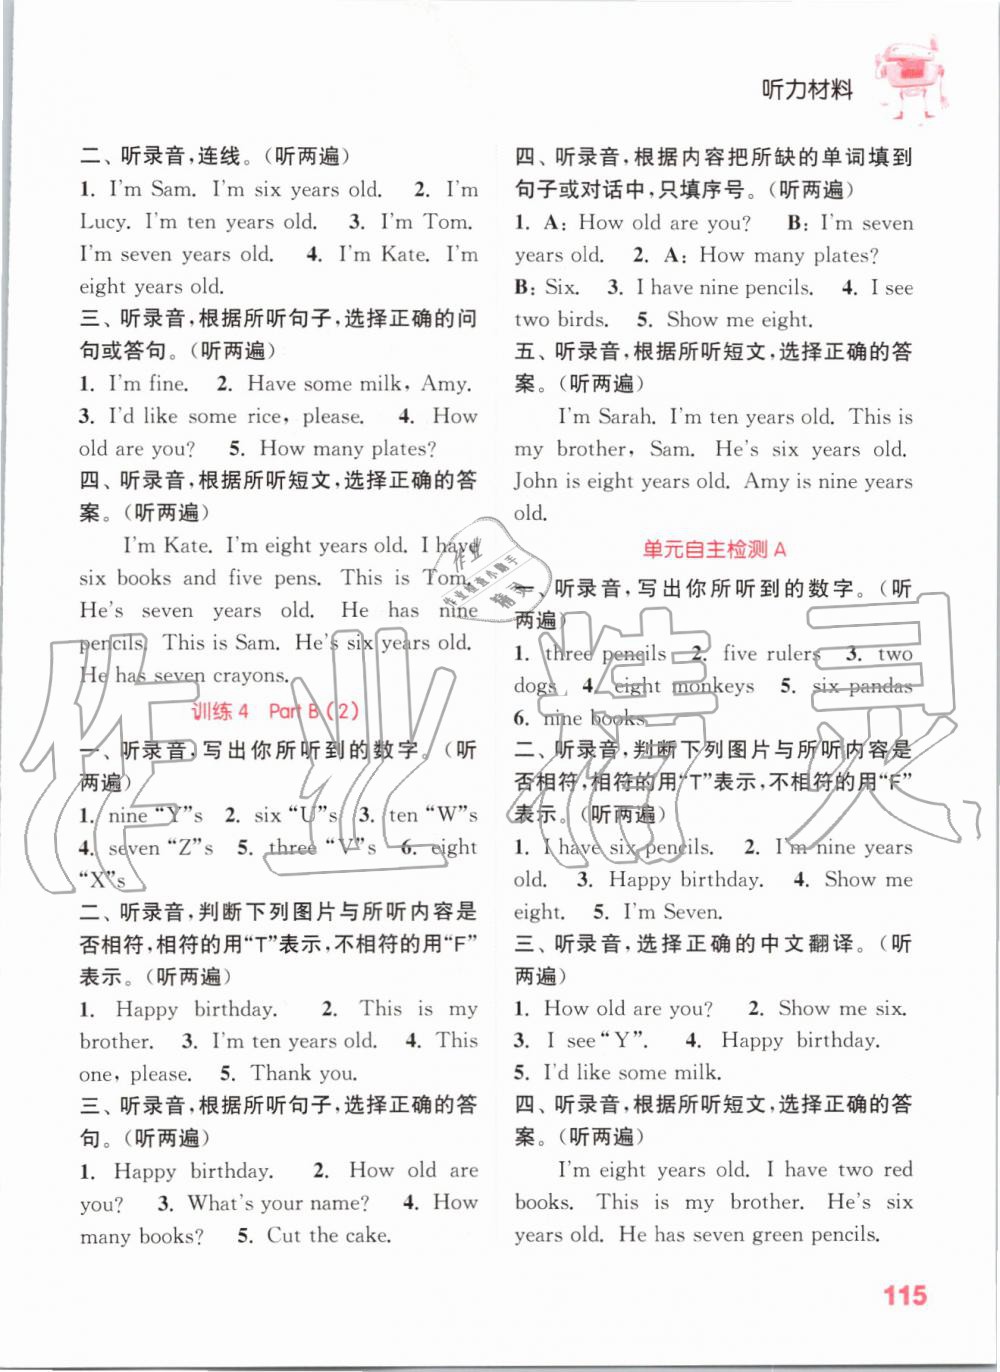 听力材料
二、听录音,连线。(听两遍)
1. I'm Sam. I'm six years old. 2. I'm
Lucy. I'm ten years old. 3. I'm Tom.
I'm seven years old. 4. I'm Kate. I'm
eight years old.
三、听录音,根据所听句子,选择正确的问
句或答句。(听两遍)
1. I'm fine. 2. Have some milk, Amy.
3. I'd like some rice, please. 4. How
old are you? 5. How many plates?
四、听录音,根据所听短文,选择正确的答
案。(听两遍)
I'm Kate. I'm eight years old. I have
six books and five pens. This is Tom.
He's seven years old. He has nine
pencils. This is Sam. He's six years old.
He has seven crayons.
训练4 Part B(2)
一、听录音,写出你所听到的数字。(听
两遍)
1. nine “Y”s 2. six “U”s 3. ten “W”s
4. seven “Z”s 5. three “V”s 6. eight
“X”s
二、听录音,判断下列图片与所听内容是
否相符,相符的用“T”表示,不相符的用“F”
表示。(听两遍)
1. Happy birthday. 2. This is my
brother. 3. I'm ten years old. 4. This
one, please. 5. Thank you.
三、听录音,根据所听句子,选择正确的答
句。(听两遍)
1. Happy birthday. 2. How old are
you? 3. What's your name? 4. How
many books? 5. Cut the cake.
四、听录音,根据内容把所缺的单词填到
句子或对话中,只填序号。(听两遍)
1. A: How old are you? B: I'm seven
years old. 2. A: How many plates?
B: Six. 3. I have nine pencils. 4. I see
two birds. 5. Show me eight.
五、听录音,根据所听短文,选择正确的答
案。(听两遍)
I'm Sarah. I'm ten years old. This is
my brother, Sam. He's six years old.
John is eight years old. Amy is nine years
old.
单元自主检测A
一、听录音,写出你所听到的数字。(听
两遍)
1. three pencils 2. five rulers 3. two
dogs 4. eight monkeys 5. six pandas
6. nine books
二、听录音,判断下列图片与所听内容是
否相符,相符的用“T”表示,不相符的用“F”
表示。(听两遍)
1. I have six pencils. 2. I'm nine years
old. 3. Happy birthday. 4. Show me
eight. 5. I'm Seven.
三、听录音,选择正确的中文翻译。(听
两遍)
1. How old are you? 2. Show me six.
3. I see “Y”. 4. Happy birthday.
5. I'd like some milk.
四、听录音,根据所听短文,选择正确的答
案。(听两遍)
I'm eight years old. I have two red
books. This is my brother. He's six
years old. He has seven green pencils.
115
作业精灵
作业
作业检查小助手
精灵